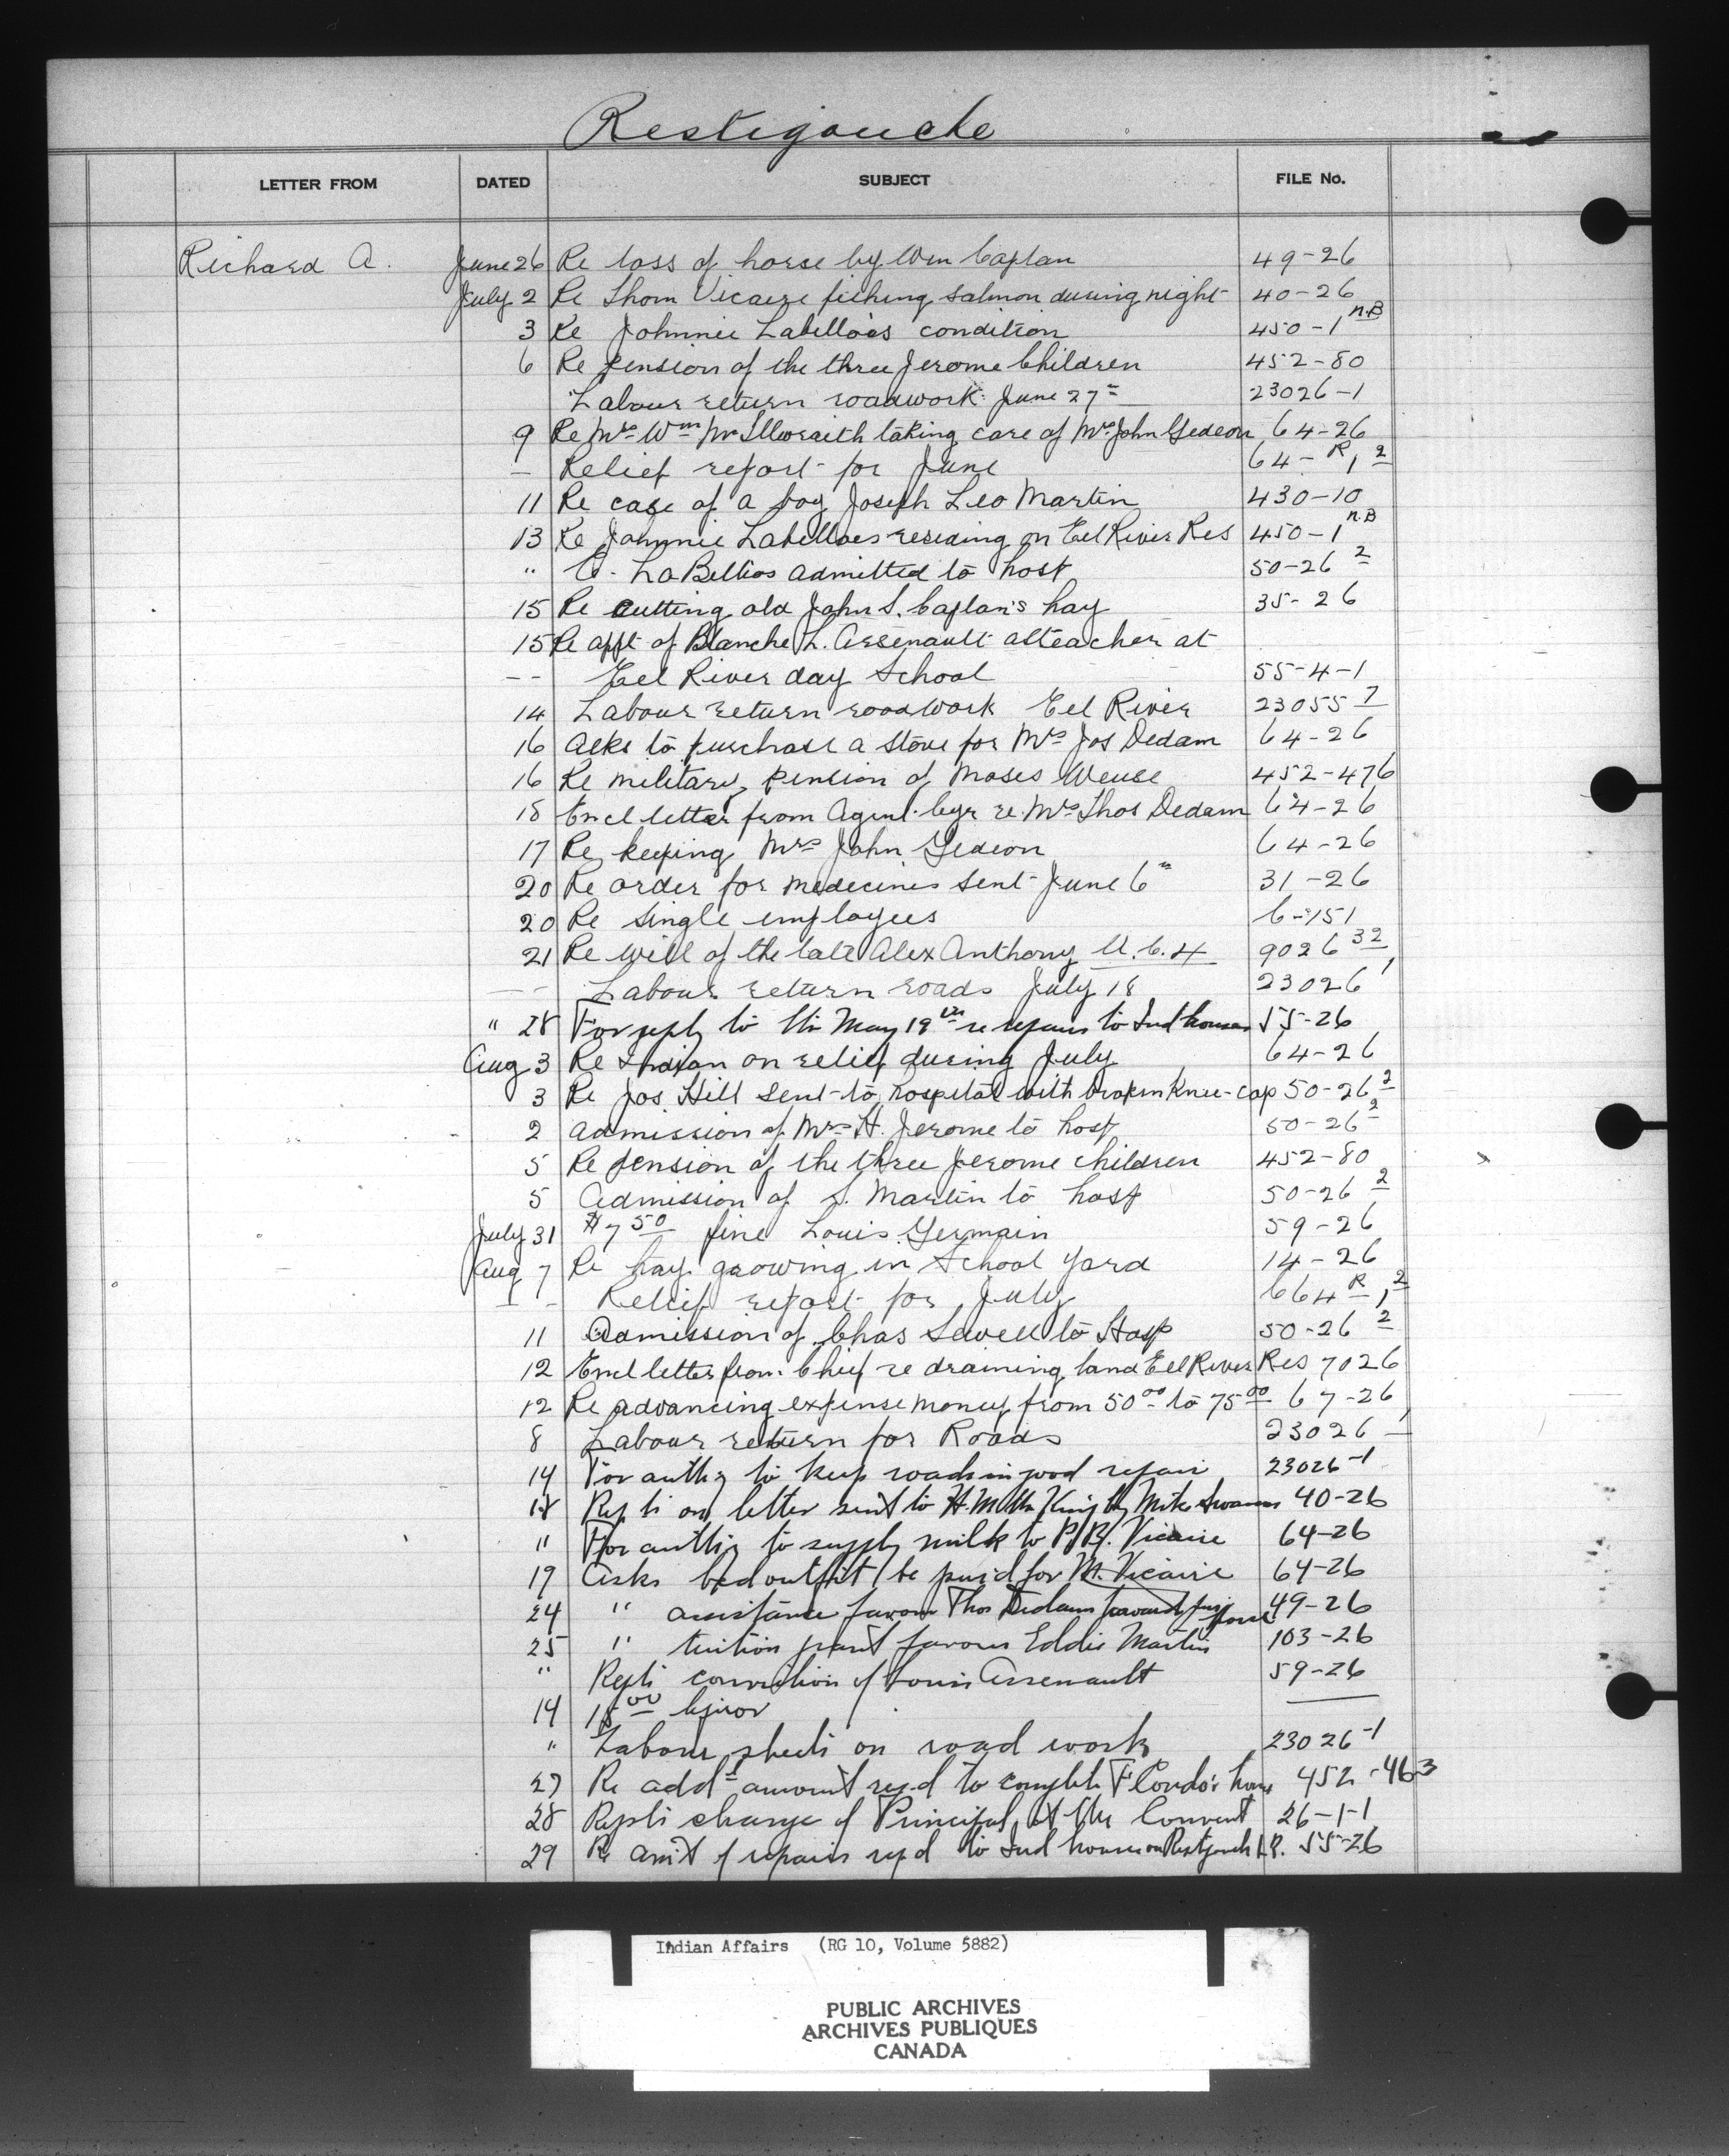 Restigouche
LETTER FROM DATED SUBJECT FILE No.
Richard A. June 26 Re loss of horse by Wm Caplan 49-26
July 2 Re Thom Vicaire fishing salmon during night 40-26
3 Re Johnnie Labelloes condition 450-1 N.B
6 Re pension of the three Jerome Children 452-80
Labour return roadwork June 27 23026-1
9 Re Mrs Wm McIllwraith taking care of Mrs John Gedeon 64-26
— Relief report for June 64-R1 2
11 Re case of a boy Joseph Leo Martin 430-10
13 Re Johnnie Labelloes residing on Eel River Res 450-1 N.B
" LaBellos admitted to hosp 50-26 2
15 Re cutting old John S. Caplan's hay 35-26
15 Re appt of Blanche L. Arsenault as teacher at
-- Eel River day School 55-4-1
14 Labour return roadwork Eel River 23055 7
16 Asks to purchase a stove for Mrs Jos Dedam 64-26
16 Re military pension of Moses Weuse 452-476
18 Encl letter from Agent re Mrs Thos Dedam 64-26
17 Re keeping Mrs John Gedeon 64-26
20 Re order for medecines sent June 6 31-26
20 Re single employees 6-151
21 Re will of the late Alex Anthony 9026 32
-- Labour return roads July 18 23026 1
" 28 For reply to ltr May 19th re repairs to Ind houses 55-26
Aug 3 Re Indian on relief during July 64-26
3 Re Jos Hill sent to hospital with broken Knee-cap 50-26 2
2 Admission of Mrs H. Jerome to hosp 50-26 2
5 Re pension of the three Jerome children 452-80
5 Admission of S. Martin to hosp 50-26 2
July 31 $7 50 fine Louis Germain 59-26
Aug 7 Re hay growing in School yard 14-26
-- Relief report for July 664 R 1, 2
11 Admission of Chas Sewell to Hosp 50-26 2
12 Encl letter from Chief re draining land Eel River Res 7026
12 Re advancing expense money from 50 00 to 75 00 67-26
8 Labour return for Roads 23026
14 For authy to keep roads in good repair 23026-1
18 Rep ts on letter sent to H.M. the King by Mike 40-26
" For authy to supply milk to Vicaire 64-26
19 Asks bed outfit be paid for M. Vicaire 64-26
24 " assistance favour Thos Dedam toward horse 49-26
25 " tuition grant favour Eddie Martin 103-26
" Repts conviction of Louis Arsenault 59-26
14 18 00 liquor
" Labour sheets on road work 23026-1
27 Re add'l amount reqd to complete F Condo's house 452-463
28 Repts change of Principal at the Convent 26-1-1
29 Re am't of repairs reqd to Ind houses on Restigouche I.R. 55-26
Indian Affairs (RG 10, Volume 5882)
PUBLIC ARCHIVES
ARCHIVES PUBLIQUES
CANADA